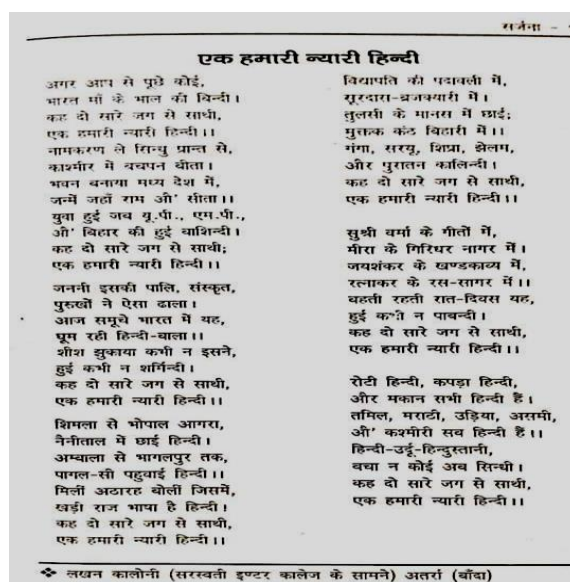 सर्जना -
एक हमारी न्यारी हिन्दी
अगर आप से पूछे कोई,
भारत माँ के भाल की बिन्दी।
कह दो सारे जग से साथी,
एक हमारी न्यारी हिन्दी।।
नामकरण ले सिन्धु प्रान्त से,
काश्मीर में बचपन बीता।
भवन बनाया मध्य देश में,
जन्में जहाँ राम औ' सीता।।
युवा हुई जब यू.पी., एम.पी.,
औ' बिहार की हुई बाशिन्दी।
कह दो सारे जग से साथी;
एक हमारी न्यारी हिन्दी।।
जननी इसकी पालि, संस्कृत,
पुरुखों ने ऐसा ढाला।
आज समूचे भारत में यह,
घूम रही हिन्दी-बाला।।
शीश झुकाया कभी न इसने,
हुई कभी न शर्मिन्दी।
कह दो सारे जग से साथी,
एक हमारी न्यारी हिन्दी।।
शिमला से भोपाल आगरा,
नैनीताल में छाई हिन्दी।
अम्बाला से भागलपुर तक,
पागल-सी पहुवाई हिन्दी।।
मिलीं अठारह बोलीं जिसमें,
खड़ी राज भाषा है हिन्दी।
कह दो सारे जग से साथी,
एक हमारी न्यारी हिन्दी।।
विद्यापति की पदावली में,
सूरदास-ब्रजक्यारी में।
तुलसी के मानस में छाई;
मुक्तक कंठ बिहारी में।।
गंगा, सरयू, शिप्रा, झेलम,
और पुरातन कालिन्दी।
कह दो सारे जग से साथी,
एक हमारी न्यारी हिन्दी।।
सुश्री वर्मा के गीतों में,
मीरा के गिरिधर नागर में।
जयशंकर के खण्डकाव्य में,
रत्नाकर के रस-सागर में।।
बहती रहती रात-दिवस यह,
हुई कभी न पाबन्दी।
कह दो सारे जग से साथी,
एक हमारी न्यारी हिन्दी।।
रोटी हिन्दी, कपड़ा हिन्दी,
और मकान सभी हिन्दी हैं।
तमिल, मराठी, उड़िया, असमी,
औ' कश्मीरी सब हिन्दी हैं।।
हिन्दी-उर्दू-हिन्दुस्तानी,
बचा न कोई अब सिन्धी।
कह दो सारे जग से साथी,
एक हमारी न्यारी हिन्दी।।
❖ लखन कालोनी (सरस्वती इण्टर कालेज के सामने) अतर्रा (बाँदा)